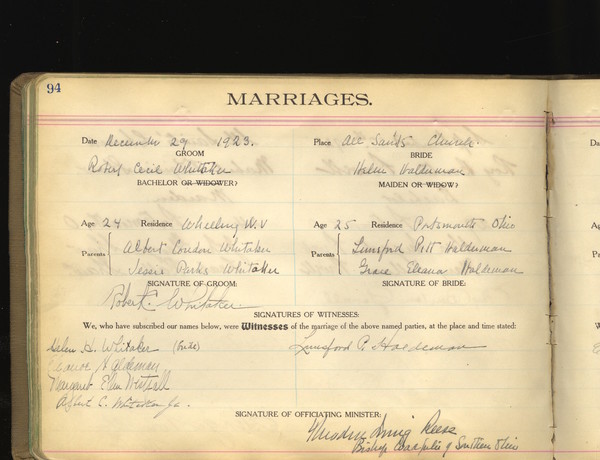 94
MARRIAGES.
Date December 29 1923. Place All Saints Church.
GROOM BRIDE
Robert Cecil Whitaker Helen Haldeman
BACHELOR OR WIDOWER? MAIDEN OR WIDOW?
Age 24 Residence Wheeling W.V Age 25 Residence Portsmouth Ohio
Parents Albert Condon Whitaker Parents Lunsford Pitt Haldeman
Jessie Parks Whitaker Grace Eleanor Haldeman
SIGNATURE OF GROOM: SIGNATURE OF BRIDE:
Robert C. Whitaker
SIGNATURES OF WITNESSES:
We, who have subscribed our names below, were Witnesses of the marriage of the above named parties, at the place and time stated:
Helen H. Whitaker (Bride) Lunsford P. Haldeman
Eleanor Haldeman
Margaret Ellen
Albert C. Whitaker Jr.
SIGNATURE OF OFFICIATING MINISTER:
Theodore Irving Reese
Bishop Coadjutor of Southern Ohio